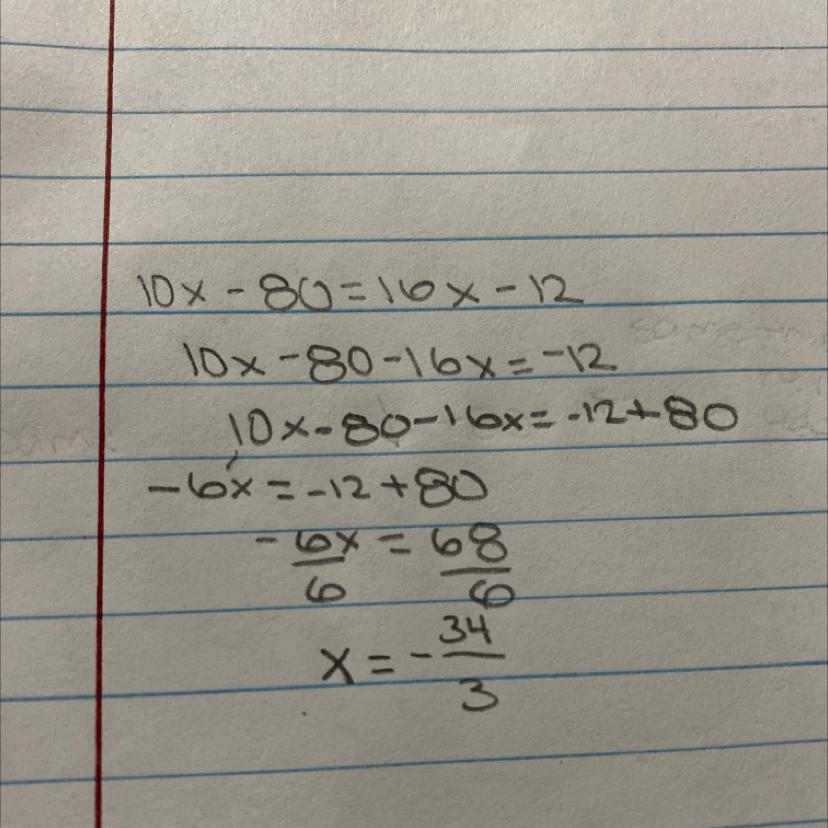 10x - 80 = 16x - 12
10x - 80 - 16x = -12
10x - 80 - 16x = -12 + 80
-6x = -12 + 80
-6x/6 = 68/6
x = -34/3